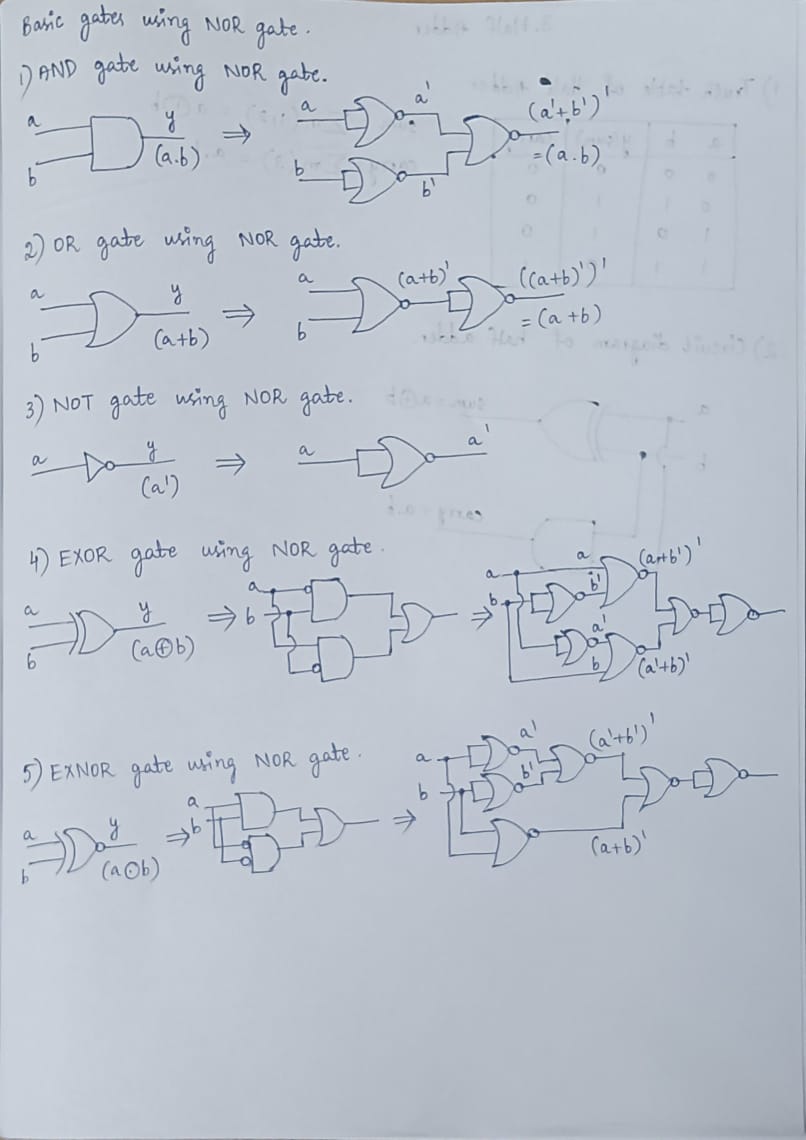 Basic gates using NOR gate.
1) AND gate using NOR gate.
a b y (a.b) ⇒ a b a' b' (a'+b')'
=(a.b)
2) OR gate using NOR gate.
a b y (a+b) ⇒ a b (a+b)' ((a+b)')'
=(a+b)
3) NOT gate using NOR gate.
a y (a') ⇒ a a'
4) EXOR gate using NOR gate.
a b y (a⊕b) ⇒ a b ⇒ a b a b' (a+b')' a' b (a'+b)'
5) EXNOR gate using NOR gate.
a b y (a⊙b) ⇒ a b ⇒ a b a' b' (a'+b')' (a+b)'